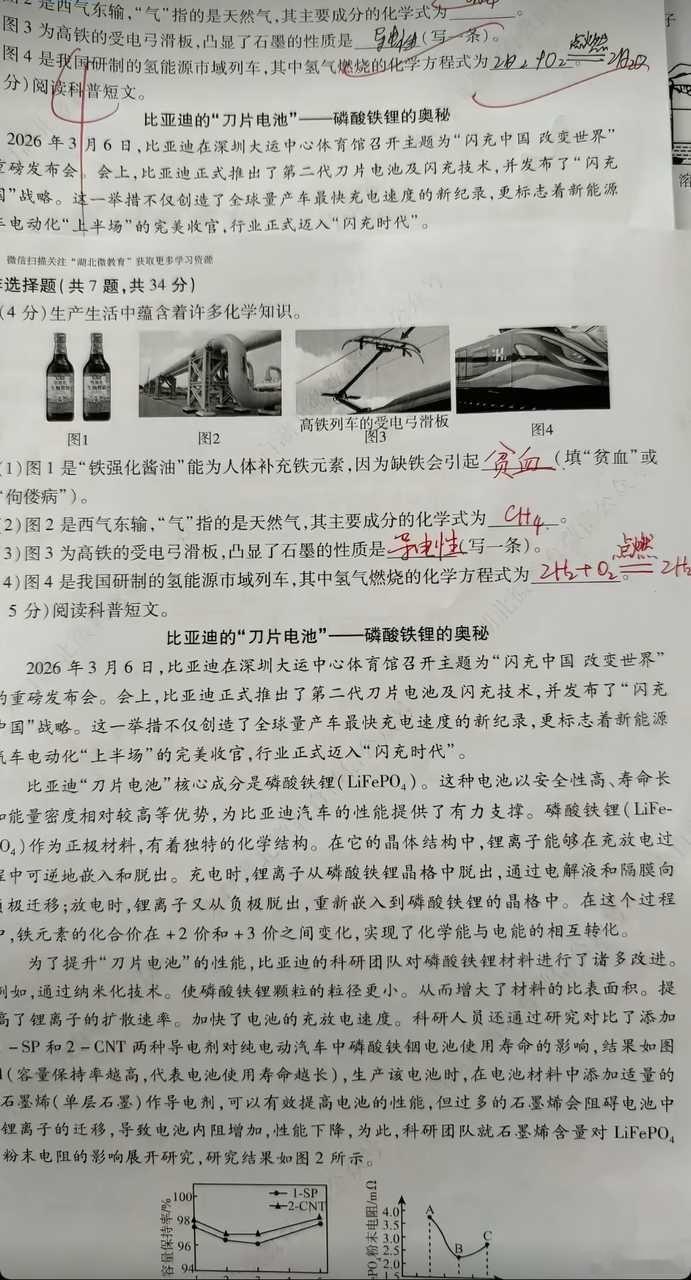 是西气东输,“气”指的是天然气,其主要成分的化学式为
图3为高铁的受电弓滑板,凸显了石墨的性质是 导电性 (写一条)。
图4是我国研制的氢能源市域列车,其中氢气燃烧的化学方程式为 2H₂+O₂ 点燃 2H₂O
分)阅读科普短文。
比亚迪的“刀片电池”——磷酸铁锂的奥秘
2026年3月6日,比亚迪在深圳大运中心体育馆召开主题为“闪充中国 改变世界”
重磅发布会。会上,比亚迪正式推出了第二代刀片电池及闪充技术,并发布了“闪充
国”战略。这一举措不仅创造了全球量产车最快充电速度的新纪录,更标志着新能源
车电动化“上半场”的完美收官,行业正式迈入“闪充时代”。
溶
微信扫描关注“湖北微教育”获取更多学习资源
选择题(共7题,共34分)
(4分)生产生活中蕴含着许多化学知识。
高铁列车的受电弓滑板
图1 图2 图3 图4
(1)图1是“铁强化酱油”能为人体补充铁元素,因为缺铁会引起 贫血 (填“贫血”或
“佝偻病”)。
(2)图2是西气东输,“气”指的是天然气,其主要成分的化学式为 CH₄ 。
(3)图3为高铁的受电弓滑板,凸显了石墨的性质是 导电性 (写一条)。
(4)图4是我国研制的氢能源市域列车,其中氢气燃烧的化学方程式为 2H₂+O₂ 点燃 2H₂
5分)阅读科普短文。
比亚迪的“刀片电池”——磷酸铁锂的奥秘
2026年3月6日,比亚迪在深圳大运中心体育馆召开主题为“闪充中国 改变世界”
的重磅发布会。会上,比亚迪正式推出了第二代刀片电池及闪充技术,并发布了“闪充
中国”战略。这一举措不仅创造了全球量产车最快充电速度的新纪录,更标志着新能源
汽车电动化“上半场”的完美收官,行业正式迈入“闪充时代”。
比亚迪“刀片电池”核心成分是磷酸铁锂(LiFePO₄)。这种电池以安全性高、寿命长
和能量密度相对较高等优势,为比亚迪汽车的性能提供了有力支撑。磷酸铁锂(LiFe-
PO₄)作为正极材料,有着独特的化学结构。在它的晶体结构中,锂离子能够在充放电过
程中可逆地嵌入和脱出。充电时,锂离子从磷酸铁锂晶格中脱出,通过电解液和隔膜向
负极迁移;放电时,锂离子又从负极脱出,重新嵌入到磷酸铁锂的晶格中。在这个过程
中,铁元素的化合价在+2价和+3价之间变化,实现了化学能与电能的相互转化。
为了提升“刀片电池”的性能,比亚迪的科研团队对磷酸铁锂材料进行了诸多改进。
例如,通过纳米化技术。使磷酸铁锂颗粒的粒径更小。从而增大了材料的比表面积。提
高了锂离子的扩散速率。加快了电池的充放电速度。科研人员还通过研究对比了添加
1-SP和2-CNT两种导电剂对纯电动汽车中磷酸铁锂电池使用寿命的影响,结果如图
1(容量保持率越高,代表电池使用寿命越长),生产该电池时,在电池材料中添加适量的
石墨烯(单层石墨)作导电剂,可以有效提高电池的性能,但过多的石墨烯会阻碍电池中
锂离子的迁移,导致电池内阻增加,性能下降,为此,科研团队就石墨烯含量对LiFePO₄
粉末电阻的影响展开研究,研究结果如图2所示。
容量保持率/%
100
98
96
94
1-SP
2-CNT
PO₄粉末电阻/mΩ
4.0
3.5
3.0
2.5
2.0
1.5
A
B
C